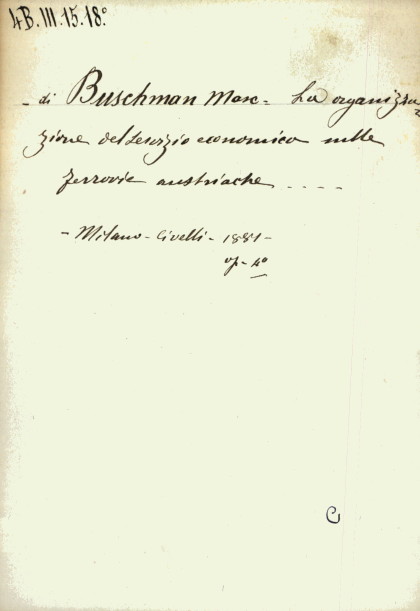 4B.III.15.18°
- di Buschman Max = La organizza=
zione del servizio economico nelle
ferrovie austriache - - - -
- Milano - Civelli - 1881 -
op - 4°
C